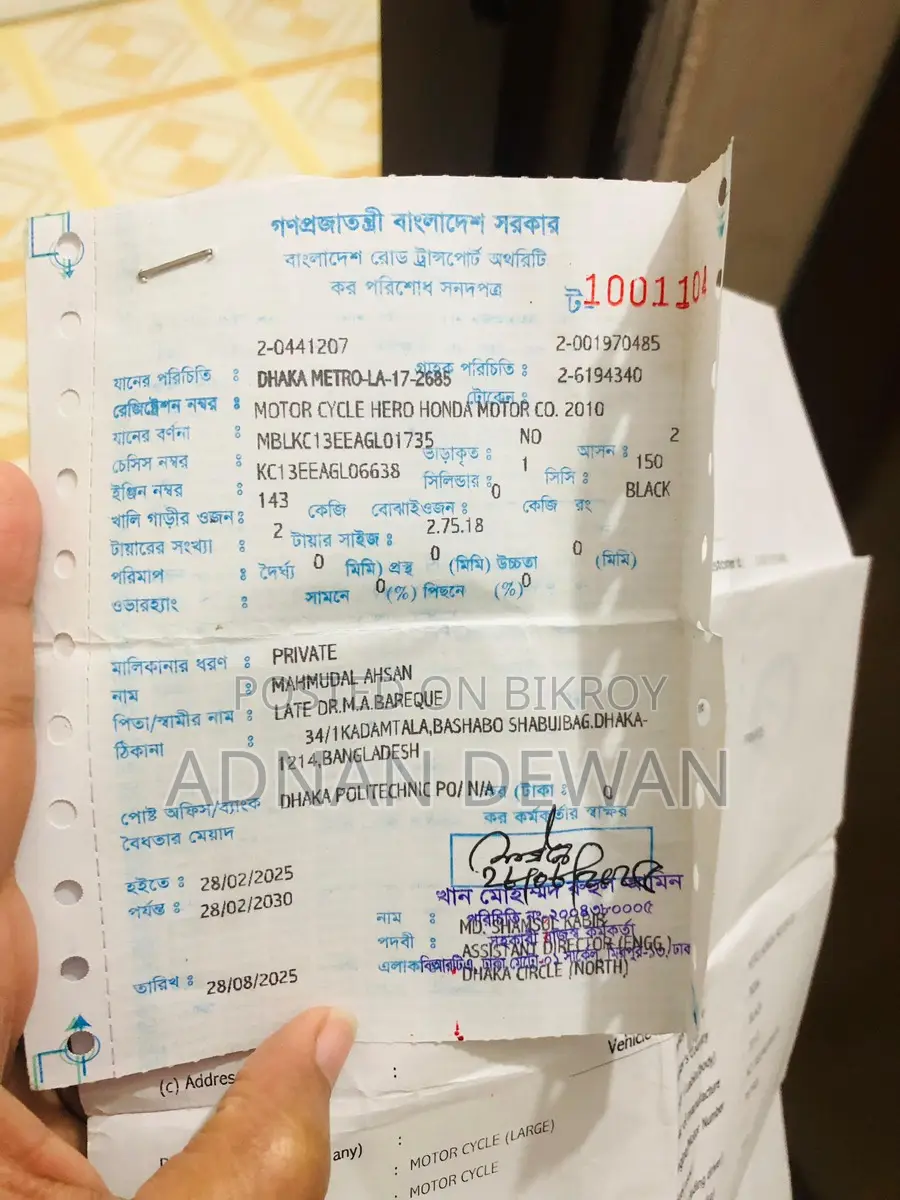 গণপ্রজাতন্ত্রী বাংলাদেশ সরকার
বাংলাদেশ রোড ট্রান্সপোর্ট অথরিটি
কর পরিশোধ সনদপত্র
ট-1001104
2-0441207 2-001970485
যানের পরিচিতি : গ্রাহক পরিচিতি : 2-6194340
রেজিষ্ট্রেশন নম্বর : DHAKA METRO-LA-17-2685 টোকেন :
যানের বর্ণনা : MOTOR CYCLE HERO HONDA MOTOR CO. 2010
চেসিস নম্বর : MBLKC13EEAGL01735 ভাড়াকৃত : NO আসন : 2
ইঞ্জিন নম্বর : KC13EEAGL06638 সিলিন্ডার : 1 সিসি : 150
খালি গাড়ীর ওজন : 143 কেজি বোঝাইওজন : 0 কেজি রং BLACK
টায়ারের সংখ্যা : 2 টায়ার সাইজ : 2.75.18
পরিমাপ : দৈর্ঘ্য 0 মিমি) প্রস্থ 0 (মিমি) উচ্চতা 0 (মিমি)
ওভারহ্যাং : সামনে 0 (%) পিছনে 0 (%)
মালিকানার ধরণ : PRIVATE
নাম : MAHMUDAL AHSAN
পিতা/স্বামীর নাম : LATE DR.M.A.BAREQUE
ঠিকানা : 34/1KADAMTALA,BASHABO SHABUJBAG.DHAKA-
1214,BANGLADESH
POSTED ON BIKROY
ADNAN DEWAN
পোষ্ট অফিস/ব্যাংক DHAKA POLITECHNIC PO/ N/A কর (টাকা : 0
বৈধতার মেয়াদ কর কর্মকর্তার স্বাক্ষর
হইতে : 28/02/2025
পর্যন্ত : 28/02/2030
খান মোহাম্মদ রুহুল আমিন
পরিচিতি নং-২০০৪৩৮০০০৫
সহকারী রাজস্ব কর্মকর্তা
নাম : MD. SHAMSUL KABIR
পদবী : ASSISTANT DIRECTOR (ENGG.)
এলাকা DHAKA CIRCLE (NORTH)
তারিখ : 28/08/2025
(c) Address :
any) :
: MOTOR CYCLE (LARGE)
: MOTOR CYCLE